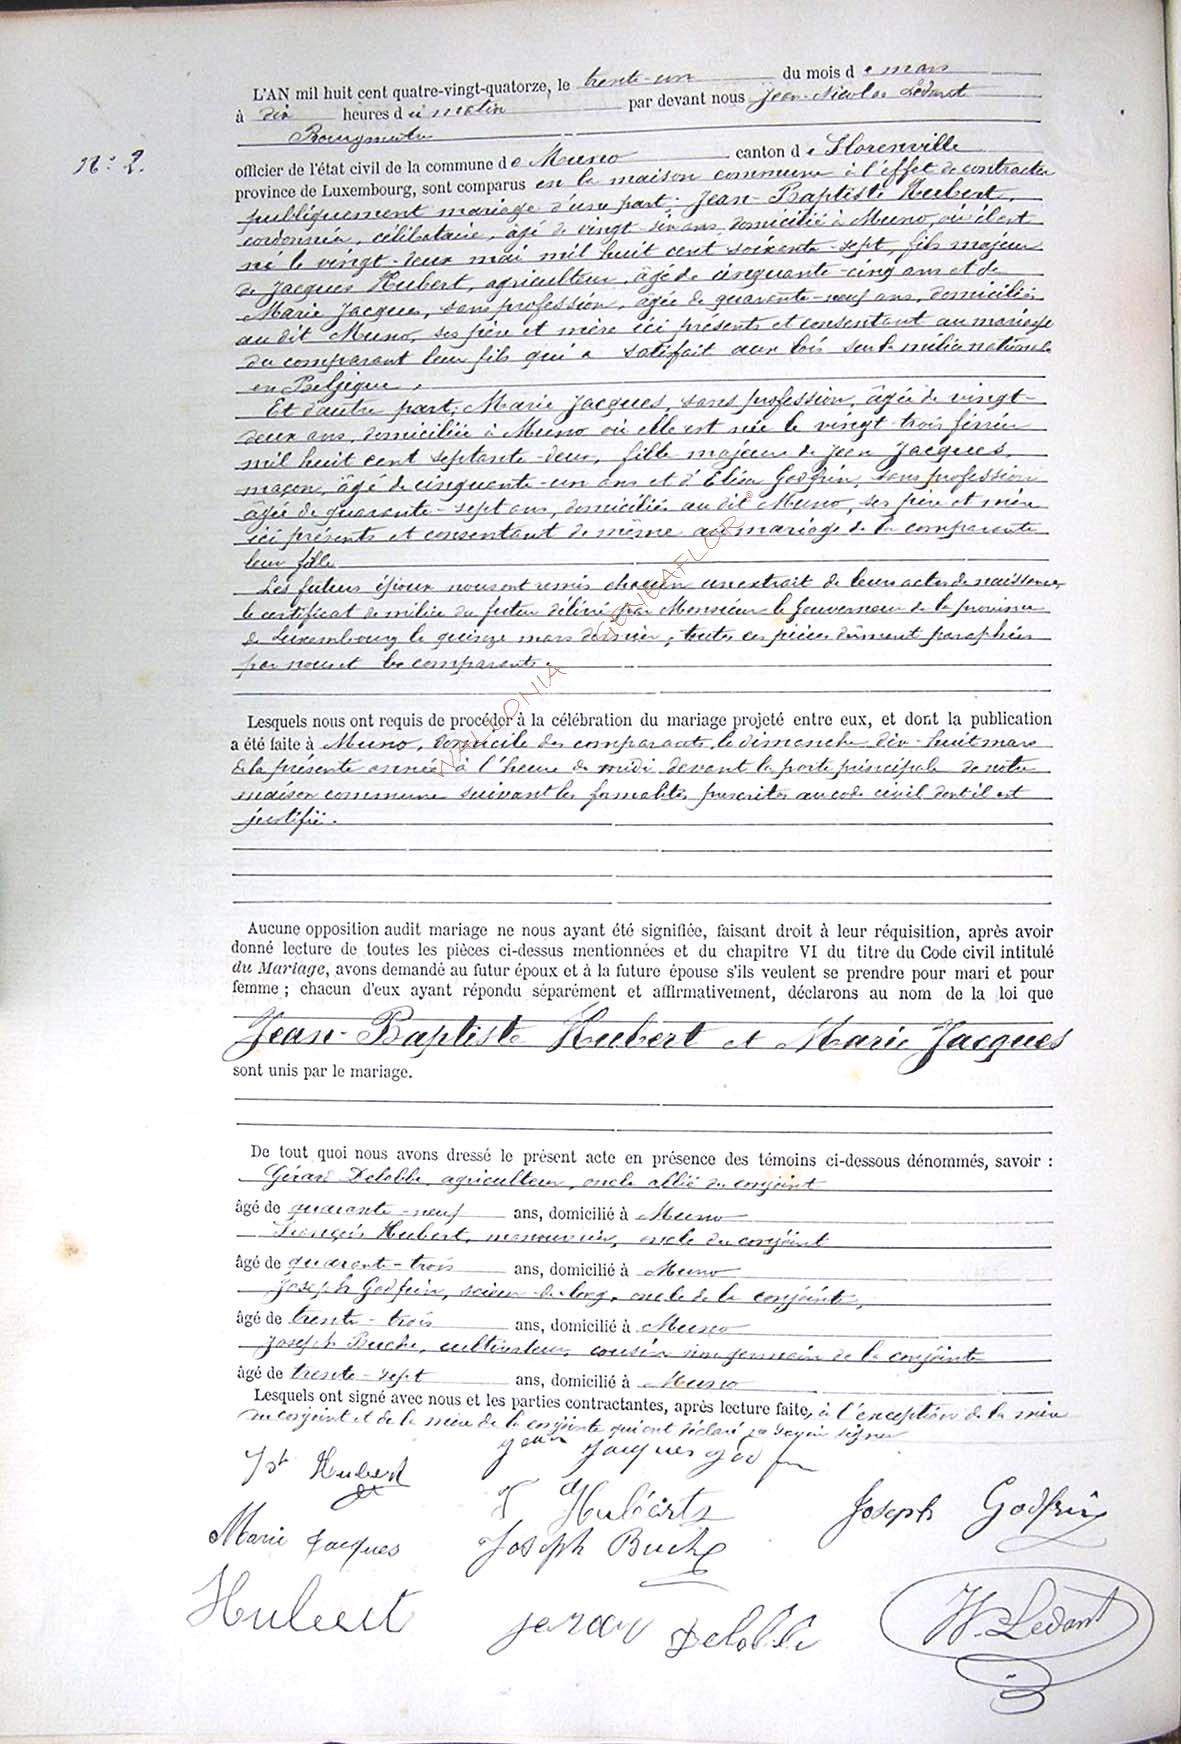 L'AN mil huit cent quatre-vingt-quatorze, le trente-un du mois de mars
à dix heures du matin par devant nous Jean-Nicolas Ledant
Bourgmestre
N° 2.
officier de l'état civil de la commune de Muno canton de Florenville
province de Luxembourg, sont comparus en la maison commune à l'effet de contracter
publiquement mariage d'une part: Jean-Baptiste Hubert,
cordonnier, célibataire, âgé de vingt-six ans, domicilié à Muno, où il est
né le vingt-deux mai mil huit cent soixante-sept, fils majeur
de Jacques Hubert, agriculteur, âgé de cinquante-cinq ans et de
Marie Jacques, sans profession, âgée de quarante-neuf ans, domiciliés
au dit Muno, ses père et mère ici présents et consentant au mariage
du comparant leur fils qui a satisfait aux lois sur la milice nationale
en Belgique.
Et d'autre part, Marie Jacques, sans profession, âgée de vingt-
deux ans, domiciliée à Muno où elle est née le vingt-trois février
mil huit cent septante-deux, fille majeure de Jean Jacques,
maçon, âgé de cinquante-un ans et d'Elisa Godfrin, sans profession
âgée de quarante-sept ans, domiciliés au dit Muno, ses père et mère
ici présents et consentant de même au mariage de la comparante
leur fille.
Les futurs époux nous ont remis chacun un extrait de leurs actes de naissance,
le certificat de milice du futur délivré par Monsieur le Gouverneur de la province
de Luxembourg le quinze mars dernier, toutes ces pièces dûment paraphées
par nous et les comparants.
WALLONIA GENEAFLOR ®
Lesquels nous ont requis de procéder à la célébration du mariage projeté entre eux, et dont la publication
a été faite à Muno, domicile des comparants, le dimanche dix-huit mars
de la présente année à l'heure de midi devant la porte principale de notre
maison commune suivant les formalités prescrites au code civil dont il est
justifié.
Aucune opposition audit mariage ne nous ayant été signifiée, faisant droit à leur réquisition, après avoir
donné lecture de toutes les pièces ci-dessus mentionnées et du chapitre VI du titre du Code civil intitulé
du Mariage, avons demandé au futur époux et à la future épouse s'ils veulent se prendre pour mari et pour
femme ; chacun d'eux ayant répondu séparément et affirmativement, déclarons au nom de la loi que
Jean-Baptiste Hubert et Marie Jacques
sont unis par le mariage.
De tout quoi nous avons dressé le présent acte en présence des témoins ci-dessous dénommés, savoir :
Gérard Delobbe, agriculteur, oncle allié du conjoint
âgé de quarante-neuf ans, domicilié à Muno
François Hubert, manouvrier, oncle du conjoint
âgé de quarante-trois ans, domicilié à Muno
Joseph Godfrin, scieur-de-long, oncle de la conjointe,
âgé de trente-trois ans, domicilié à Muno
Joseph Buche, cultivateur, cousin non germain de la conjointe
âgé de trente-sept ans, domicilié à Muno
Lesquels ont signé avec nous et les parties contractantes, après lecture faite, à l'exception de la mère
du conjoint et de la mère de la conjointe qui ont déclaré ne savoir signer
Jean Jacques
Hubert
Huberts
Joseph Godfrin
Marie Jacques
Joseph Buche
Hubert
Delobbe
Ledant